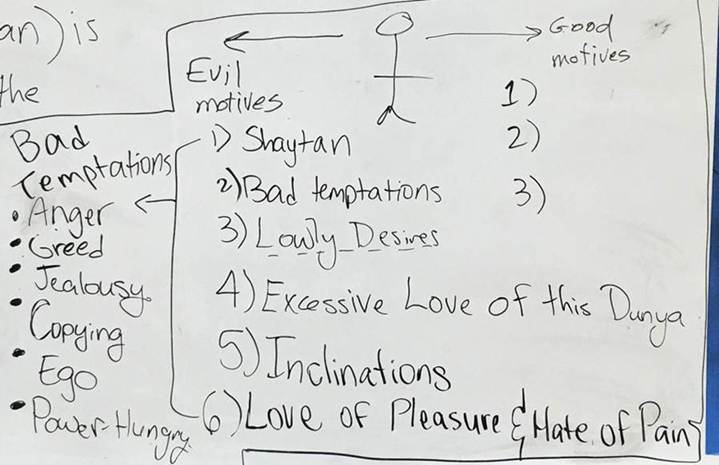 an) is
the
Evil
motives
Good
motives
1)
2)
3)
1) Shaytan
2) Bad temptations
3) Lowly Desires
4) Excessive Love of this Dunya
5) Inclinations
6) Love of Pleasure & Hate of Pain
Bad
Temptations
• Anger
• Greed
• Jealousy
• Copying
• Ego
• Power-Hungry